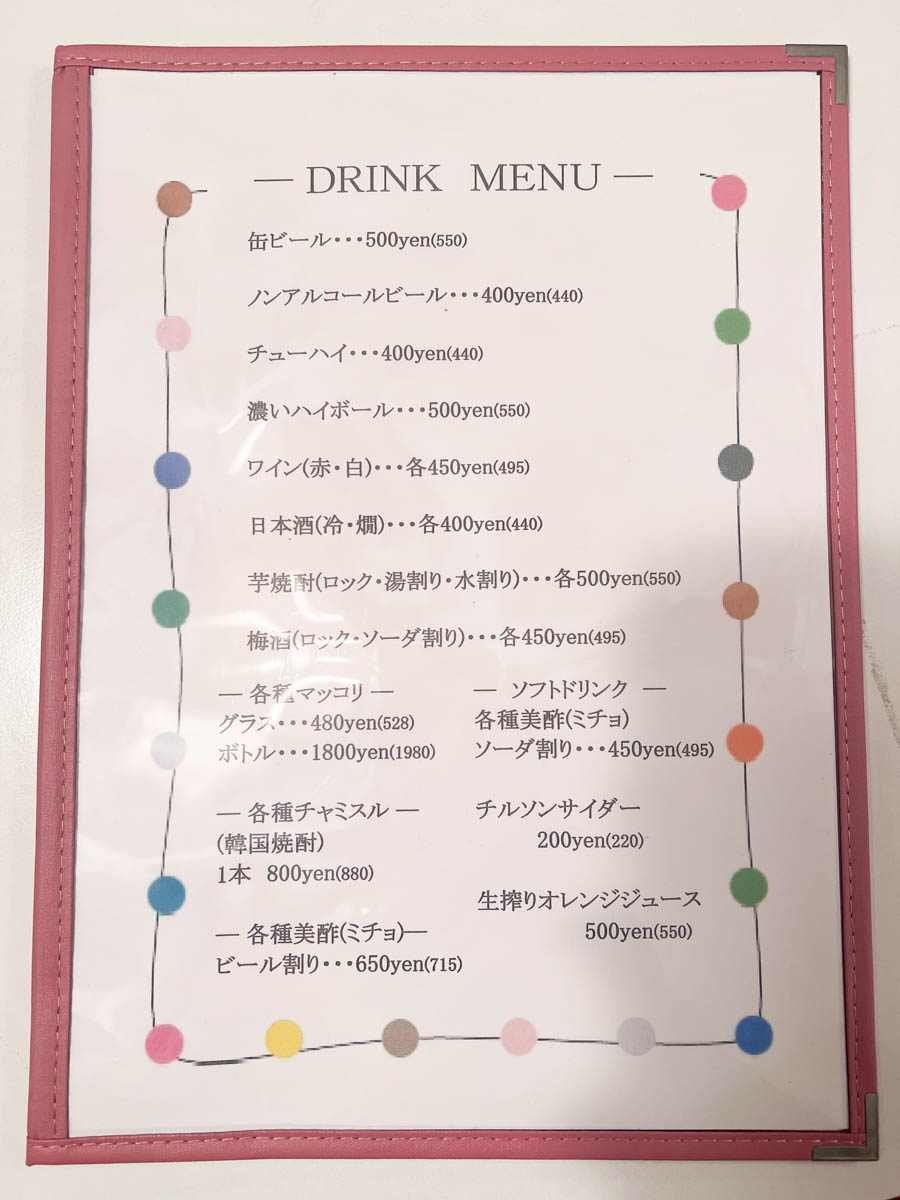 ― DRINK MENU ―
缶ビール・・・500yen(550)
ノンアルコールビール・・・400yen(440)
チューハイ・・・400yen(440)
濃いハイボール・・・500yen(550)
ワイン(赤・白)・・・各450yen(495)
日本酒(冷・燗)・・・各400yen(440)
芋焼酎(ロック・湯割り・水割り)・・・各500yen(550)
梅酒(ロック・ソーダ割り)・・・各450yen(495)
― 各種マッコリ ―
グラス・・・480yen(528)
ボトル・・・1800yen(1980)
― 各種チャミスル ―
(韓国焼酎)
1本 800yen(880)
― 各種美酢(ミチョ)―
ビール割り・・・650yen(715)
― ソフトドリンク ―
各種美酢(ミチョ)
ソーダ割り・・・450yen(495)
チルソンサイダー
200yen(220)
生搾りオレンジジュース
500yen(550)